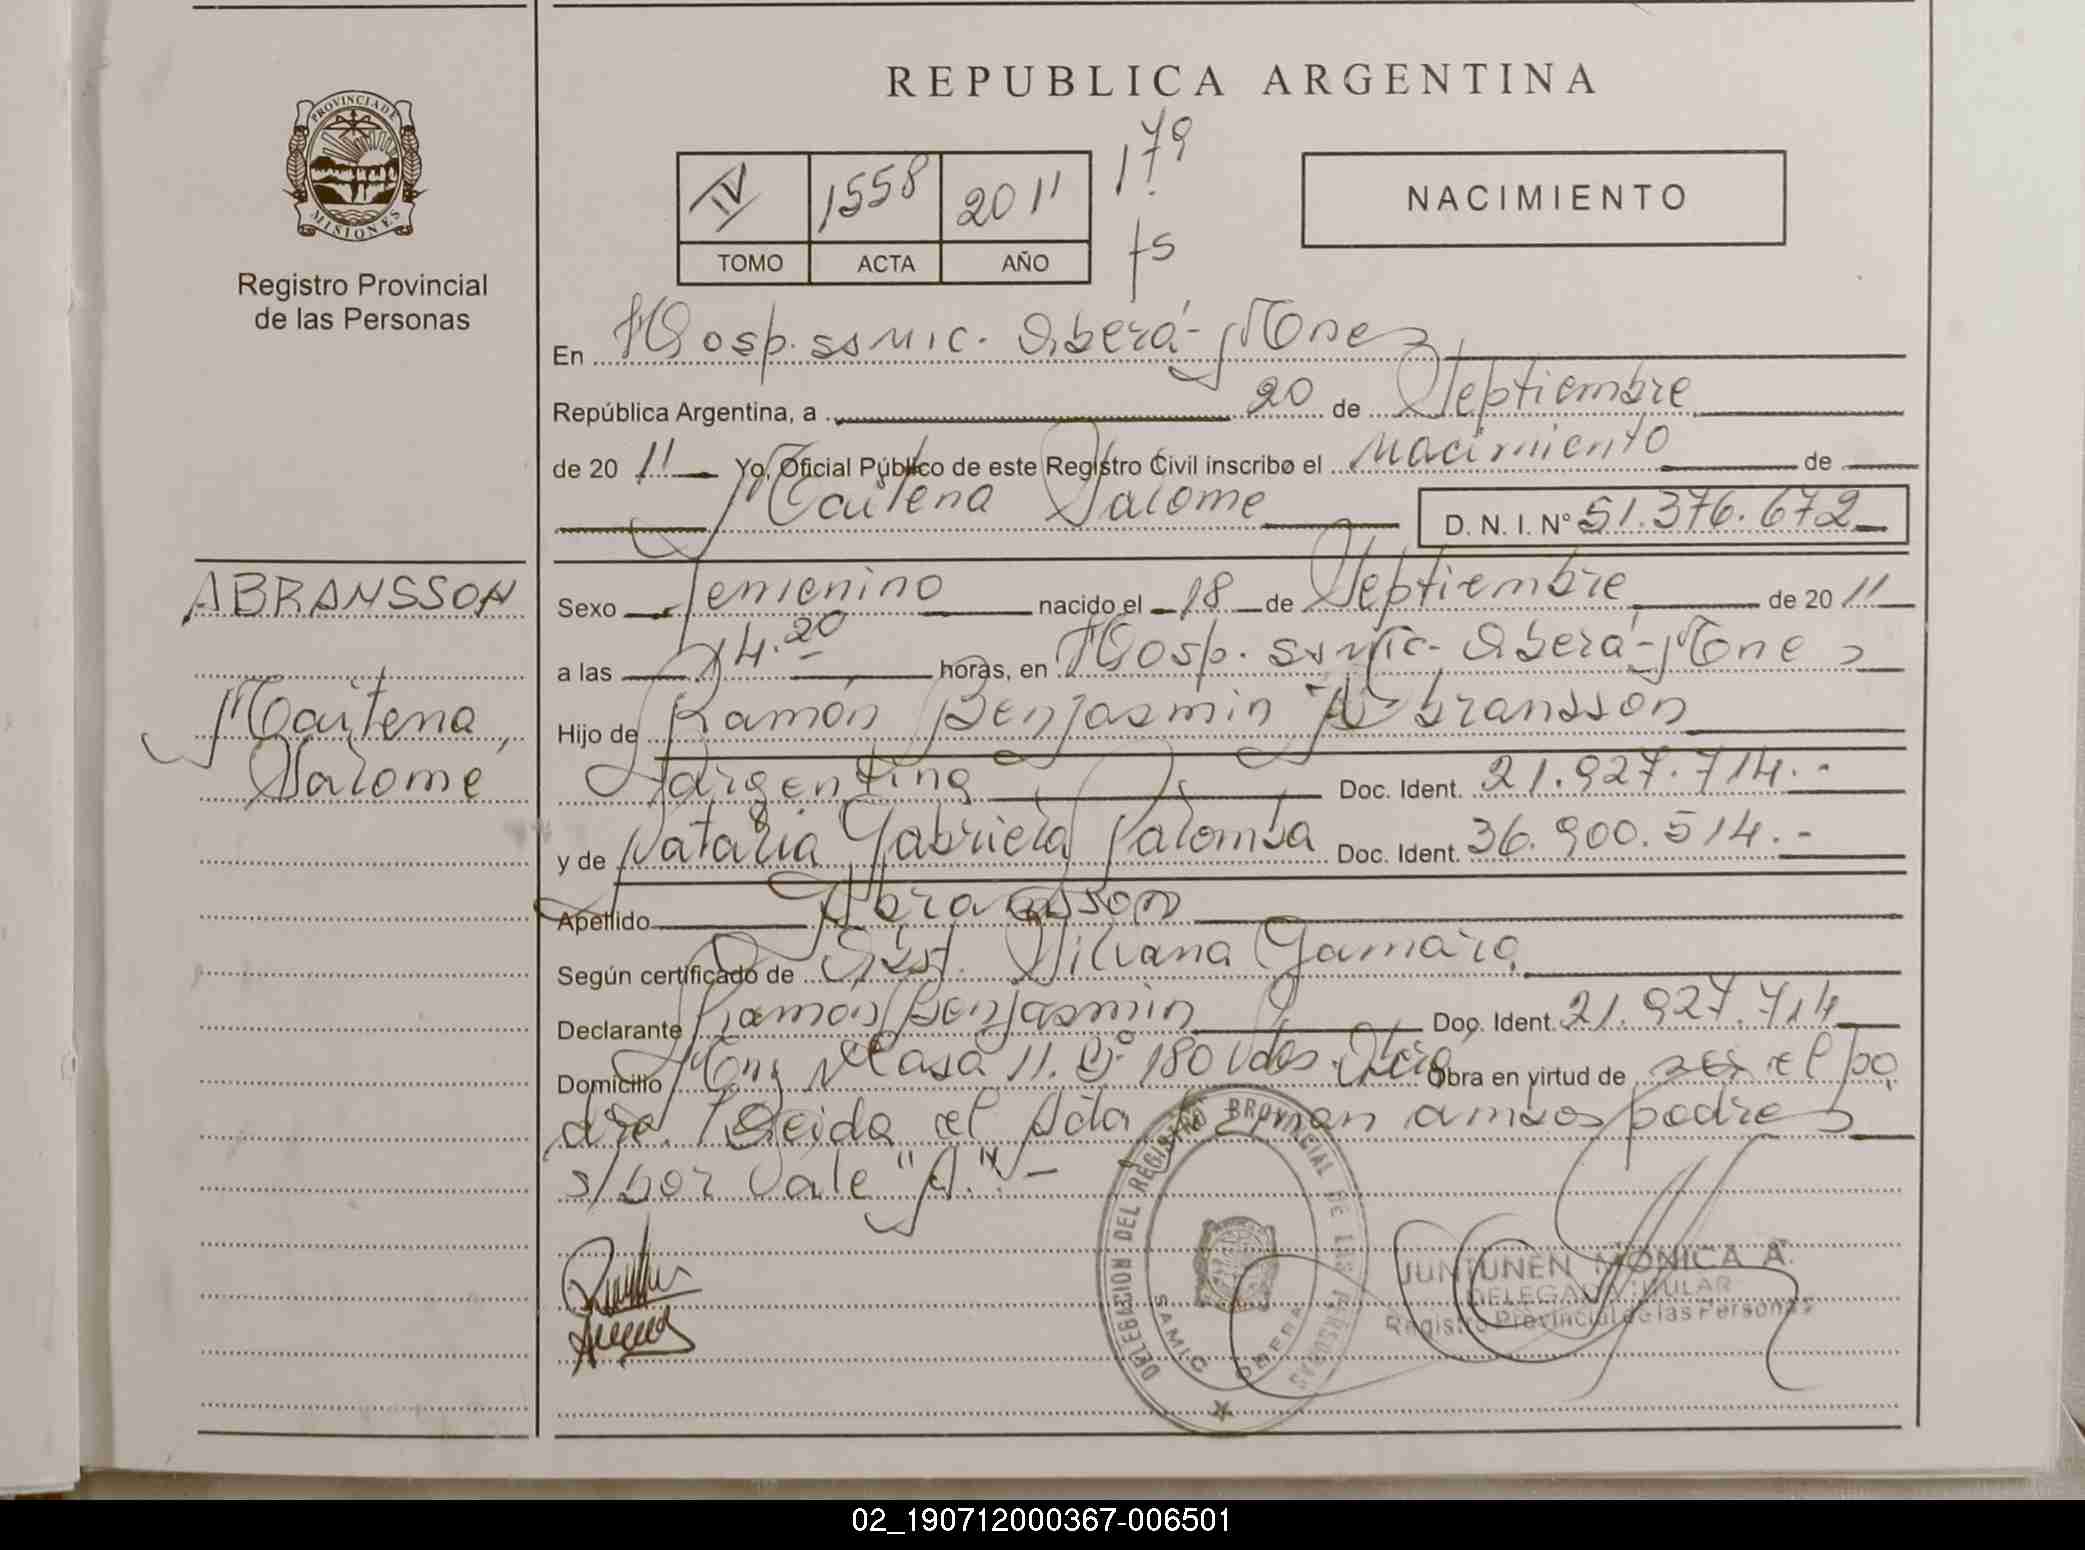 PROVINCIA DE
MISIONES
Registro Provincial
de las Personas
REPUBLICA ARGENTINA
179
IV 1558 2011
TOMO ACTA AÑO
fs
NACIMIENTO
En Hosp. ssmic. Oberá-Mnes
República Argentina, a 20 de Septiembre
de 20 11 Yo, Oficial Público de este Registro Civil inscribo el Nacimiento de
Maitena Salome D. N. I. Nº 51.376.672
ABRANSSON
Maitena,
Salomé
Sexo Femenino nacido el 18 de Septiembre de 20 11
a las 14.20 horas, en Hosp. ssmic. Oberá-Mnes
Hijo de Ramón Benjasmin Abransson
Argentina Doc. Ident. 21.927.714.-
y de Natalia Gabriela Palomba Doc. Ident. 36.900.514.-
Apellido Abransson
Según certificado de Obst. Silvana Gamarra
Declarante Ramon Benjasmin Doc. Ident. 21.927.714
Domicilio Casa 11. 180 Vdas. Obra en virtud de ser el pa
dre. Leida el Acta firman ambos padres
s/bor Vale "A".-
DELEGACION DEL REGISTRO PROVINCIAL DE LAS PERSONAS
SAMIC OBERA
JUNTUNEN MONICA A.
DELEGADA TITULAR
Registro Provincial de las Personas
02_190712000367-006501